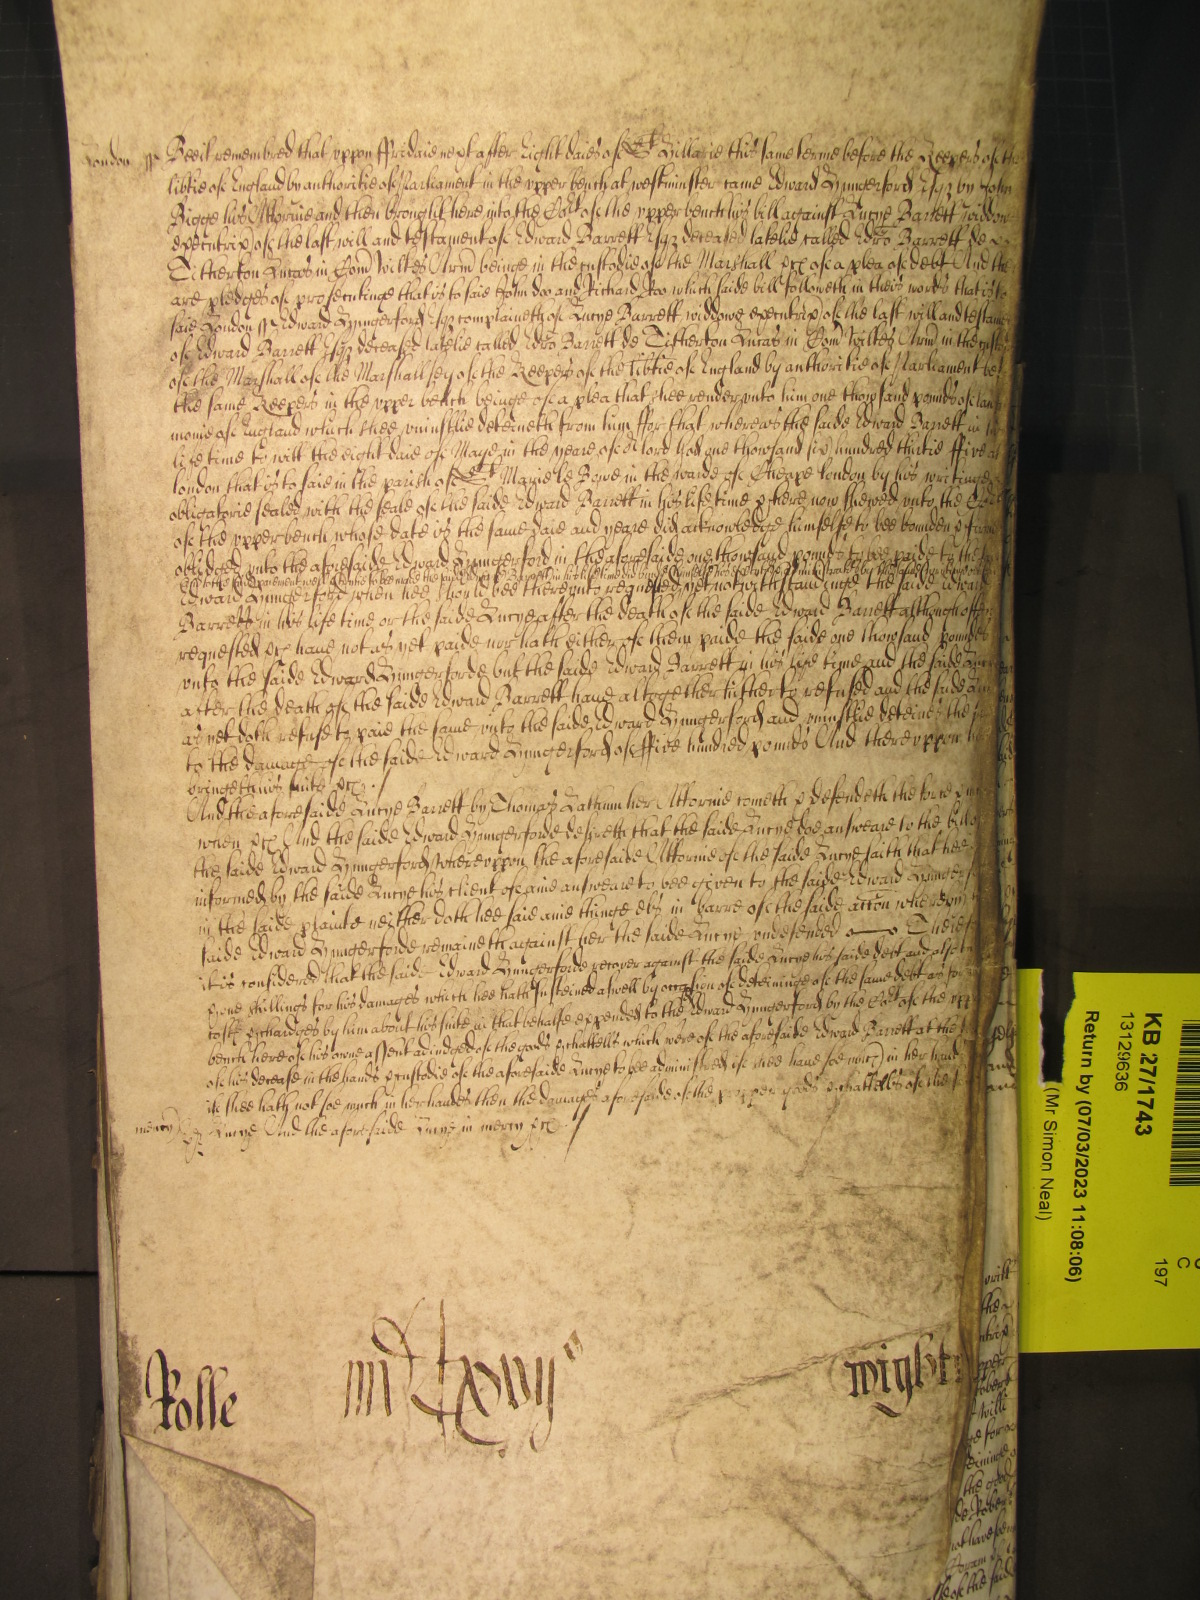 London ss Beeit remembred that uppon ffridaie next after Eight daies of St Hillarie this same terme before the Keepers of the
libtie of England by authoritie of Parliament in the upper bench at westminster came Edward Hungerford Esqz by John
Bigge his Attornie and then brought here into the Cort of the upper bench his bill against Lucye Barrett widdow
executrix of the last will and testament of Edward Barrett Esqz deceased latelie called Edro Barrett de
Titherton Lucas in Com Wiltes Arm beinge in the custodie of the Marshall &c of a plea of debt And there
are pledges of prosecutinge that is to saie John doo and Richard Roo which saide bill followeth in theis words that is to
saie London ss Edward Hungerford Esqz complaineth of Lucye Barrett widdowe executrix of the last will and testamt
of Edward Barrett Esqz deceased latelie called Edro Barrett de Titherton Lucas in Com Wiltes Arm in the custodie
of the Marshall of the Marshallsey of the Keepers of the libtie of England by authoritie of Parliament before
the same Keepers in the upper bench beinge of a plea that shee render unto him one thowsand pounds of
monie of England which shee uniustlie deteineth from him ffor that whereas the saide Edward Barrett in his
life time to witt the eight daie of Maye in the yeare of or Lord God one thowsand six hundred thirtie ffive at
London that is to saie in the parish of St Marie le Bowe in the warde of Cheape London by his writinge
obligatorie sealed with the seale of the saide Edward Barrett in his life time & here now shewed unto the Cort
of the upper bench whose date is the same daie and yeare did acknowledge himselfe to bee bounden &
obliedged unto the aforesaide Edward Hungerford in the aforesaide one thowsand pounds to bee paide to the
Edward Hungerford when hee should bee thereunto requested yet notwithstandinge the saide Edward
Barrett in his life time or the saide Lucye after the death of the saide Edward Barrett although often
requested &c have not as yet paide nor hath either of them paide the saide one thowsand pounds
unto the saide Edward Hungerforde but the saide Edward Barrett in his life time and the saide Lucye
after the death of the saide Edward Barrett have altogether hitherto refused and the saide
as yet doth refuse to paie the same unto the saide Edward Hungerford and uniustlie deteines the
to the damage of the saide Edward Hungerford of ffive hundred pounds And thereuppon hee
bringeth his suite &c
And the aforesaide Lucye Barrett by Thomas Lathum her Attornie cometh & defendeth the force &
when &c And the saide Edward Hungerforde desireth that the saide Lucye doe answeare to the bill of
the saide Edward Hungerford Whereuppon the aforesaide Attornie of the saide Lucye saith that hee
informed by the saide Lucye his client of anie answeare to bee given to the saide Edward Hungerford
in the saide plainte neither doth hee saie anie thinge els in barre of the saide accon whereby
saide Edward Hungerforde remaineth against her the saide Lucye undefended Theref
it is considered that the saide Edward Hungerforde recover against the saide Lucye his saide debt and alsoe
one shillings for his damages which hee hath susteined aswell by occasion of deteininge of the same debt as for
costs & chardges by him about his suite in that behalfe expended to the Edward Hungerford by the Cort of the upp
bench here of his owne assent adiudged of the goods & chattells which were of the aforesaide Edward Barrett at the
of his decease in the hands & custodie of the aforesaide Lucye to bee administred if shee have soe much in her hands
if shee hath not soe much in her handes then the damages aforesaide of the propper goods & chattells of the
mercy Lucye And the aforesaide Lucye in mercy &c
Rolle
wight
KB 27/1743
13129636
Return by (07/03/2023 11:08:06)
(Mr Simon Neal)
C
197